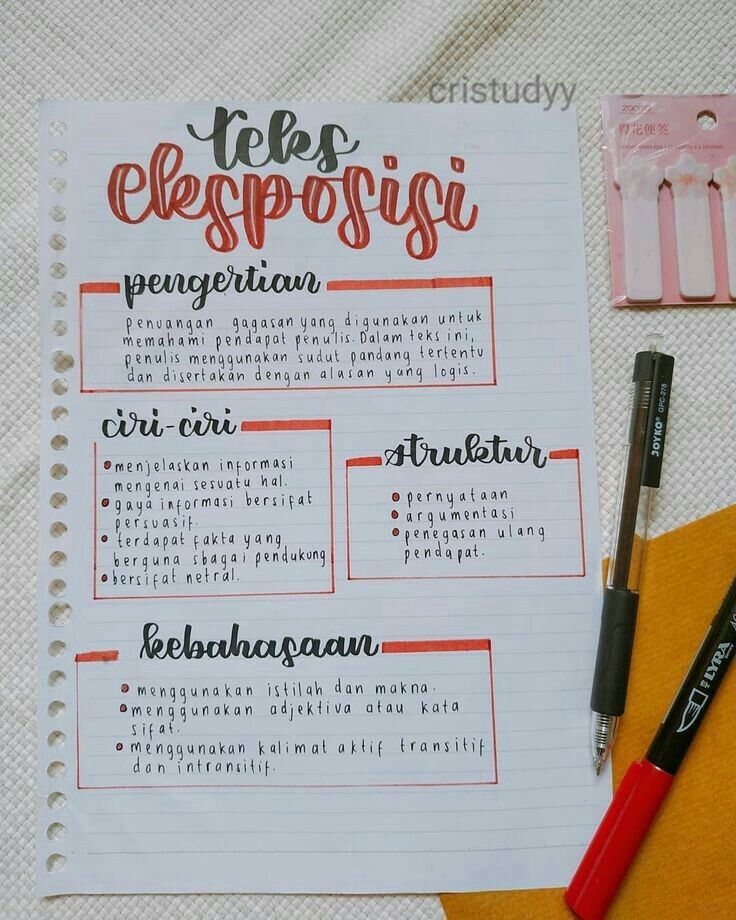 cristudyy
teks
eksposisi
pengertian
penuangan gagasan yang digunakan untuk
memahami pendapat penulis. Dalam teks ini,
penulis menggunakan sudut pandang tertentu
dan disertakan dengan alasan yang logis.
ciri-ciri
menjelaskan informasi
mengenai sesuatu hal.
gaya informasi bersifat
persuasif.
terdapat fakta yang
berguna sbagai pendukung
bersifat netral.
struktur
pernyataan
argumentasi
penegasan ulang
pendapat.
kebahasaan
menggunakan istilah dan makna.
menggunakan adjektiva atau kata
sifat.
menggunakan kalimat aktif transitif
dan intransitif.
樱花便签
JOYKO GPC-278
LYRA